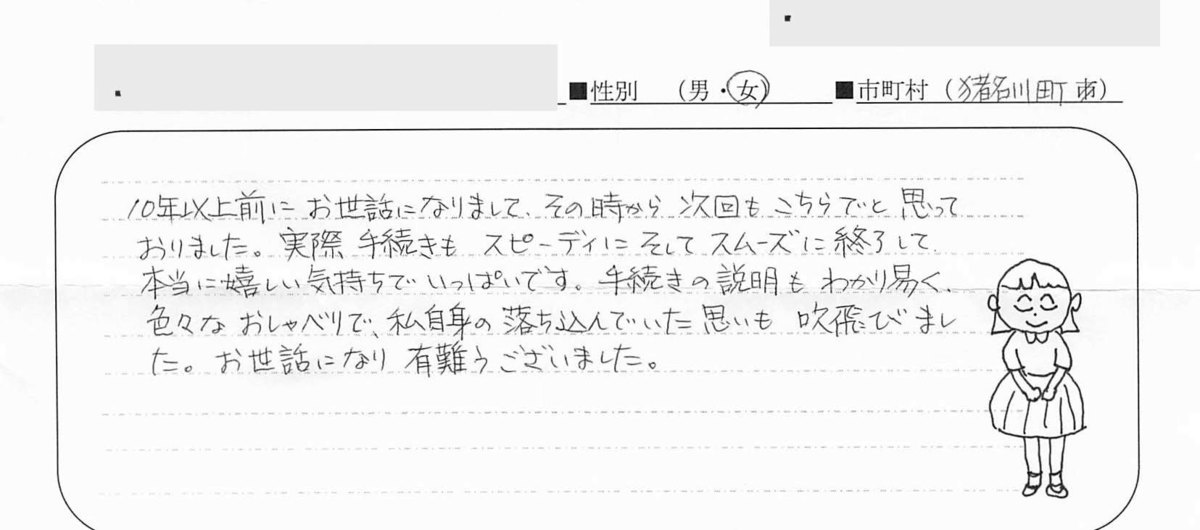 ■性別 (男・女) ■市町村 (猪名川町市)
10年以上前に お世話になりまして、その時から 次回も こちらでと 思って
おりました。実際 手続きも スピーディに そして スムーズに 終了して
本当に嬉しい気持ちで いっぱいです。手続きの説明も わかり易く、
色々な おしゃべりで、私自身の 落ち込んでいた 思いも 吹飛びまし
た。お世話になり 有難うございました。